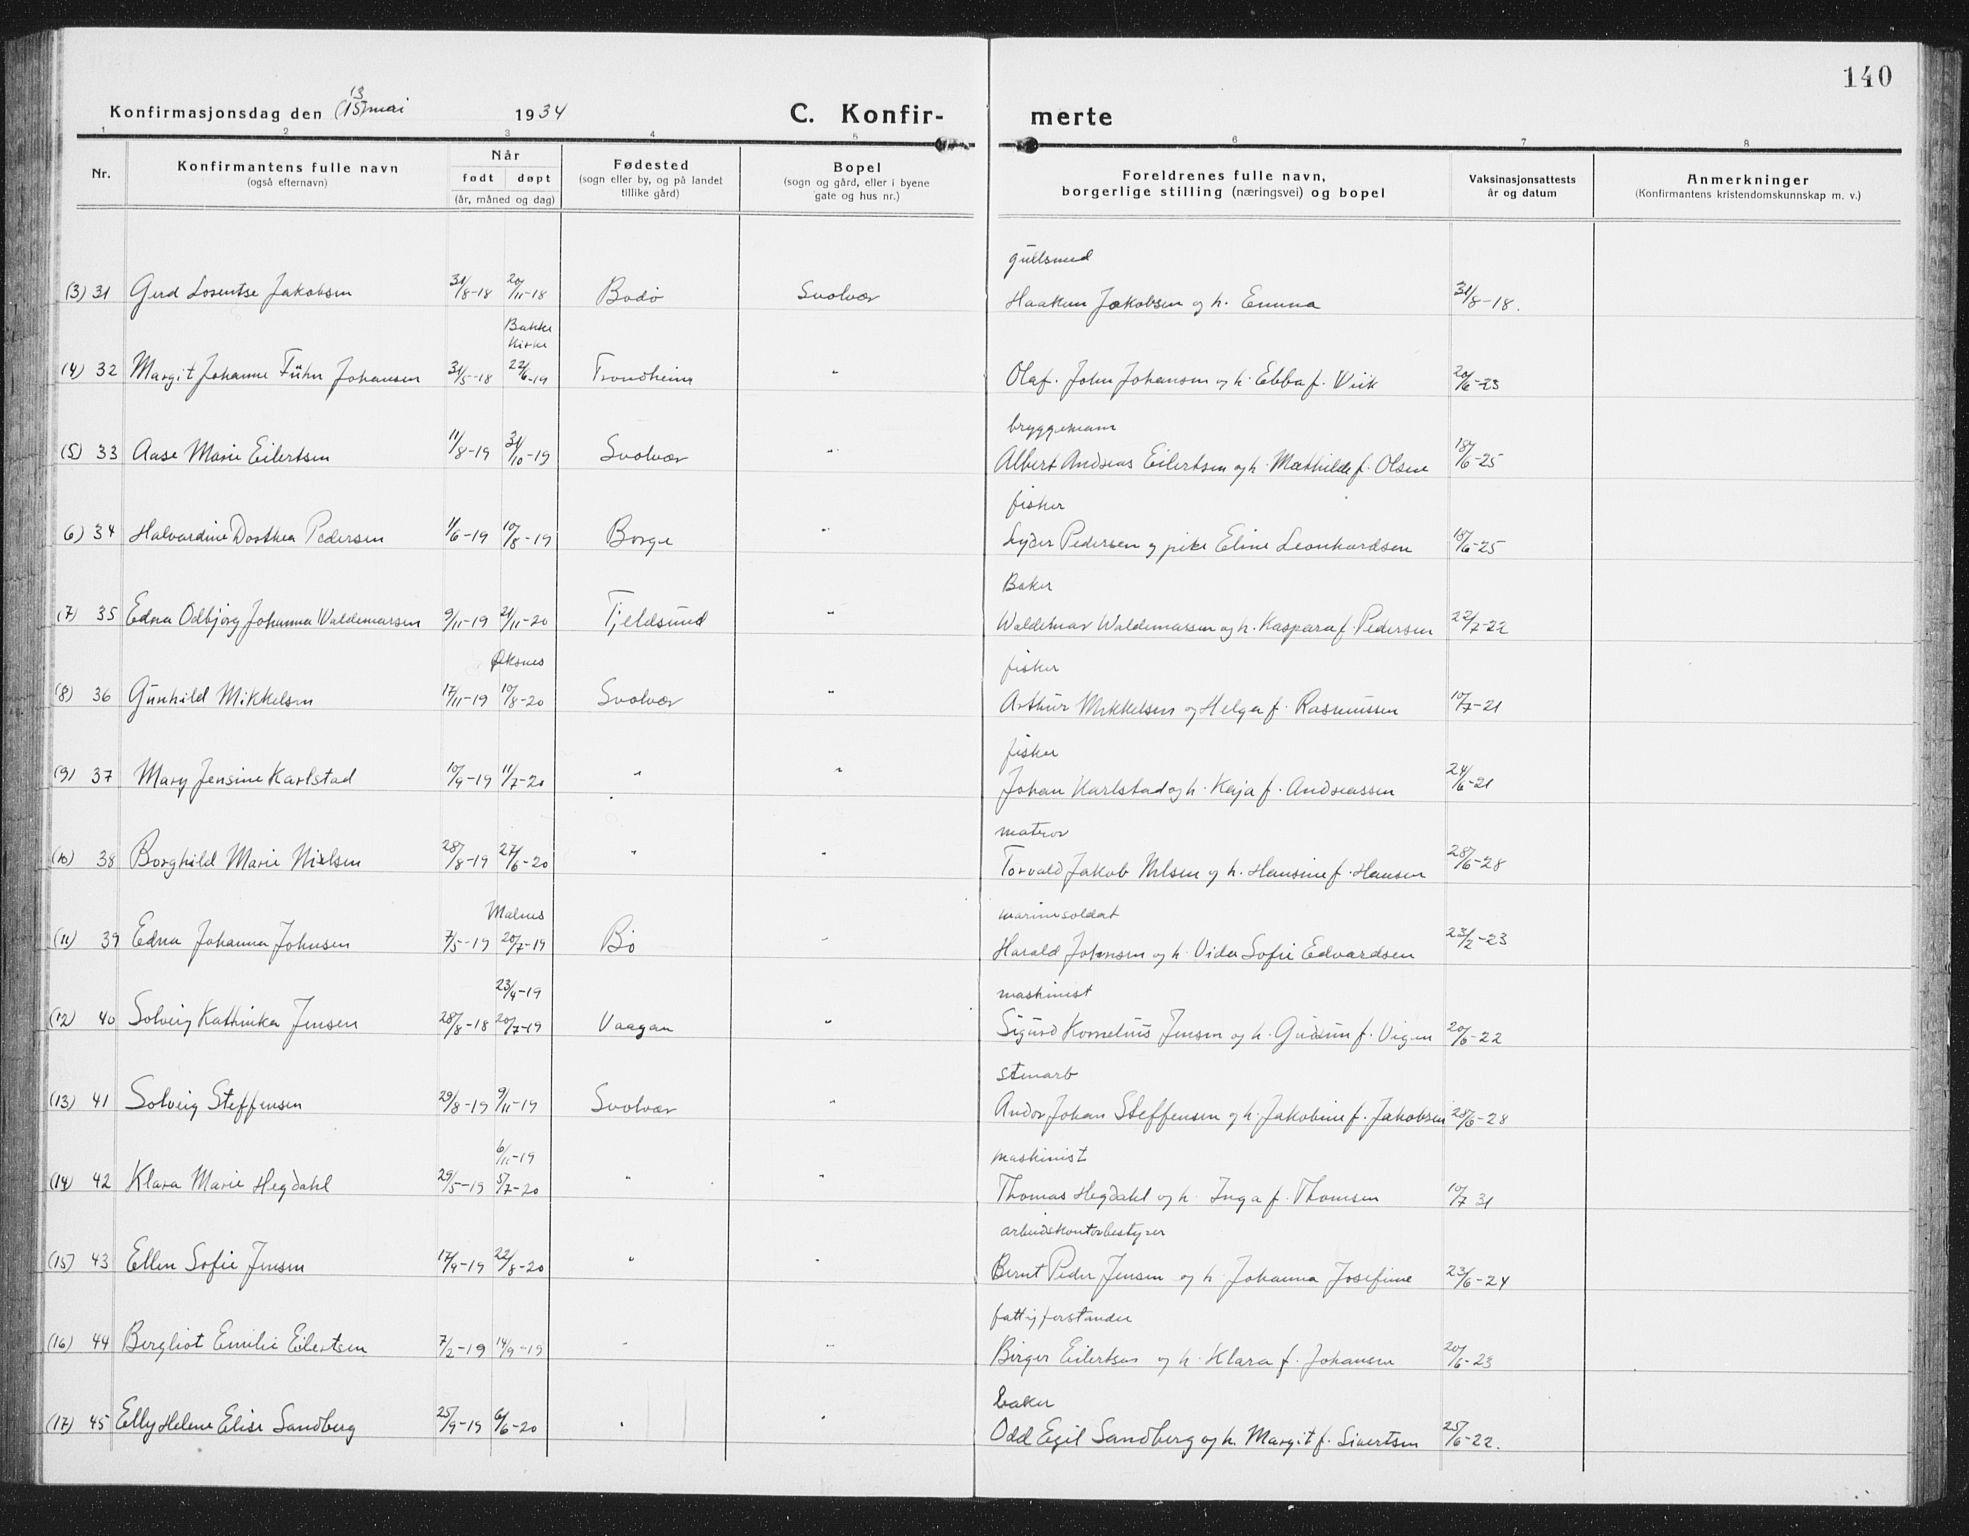 140
Konfirmasjonsdag den 13 (15) mai 1934 C. Konfir- merte
1 2 3 4 5 6 7 8
Nr. Konfirmantens fulle navn (også efternavn) Når født døpt (år, måned og dag) Fødested (sogn eller by, og på landet tillike gård) Bopel (sogn og gård, eller i byene gate og hus nr.) Foreldrenes fulle navn, borgerlige stilling (næringsvei) og bopel Vaksinasjonsattests år og datum Anmerkninger (Konfirmantens kristendomskunnskap m. v.)
gullsmed
(3) 31 Gerd Jakobsen 31/8-18 20/11-18 Bodø Svolvær Haakon Jakobsen og h. Emma 31/8-18.
Bakke
Kirke
(4) 32 Margit Johanne Führ Johansen 31/5-18 22/6-19 Trondheim " Olaf John Johansen og h. Ebba f. Wiik 20/6-23
bryggemann
(5) 33 Aase Marie Eilertsen 11/8-19 31/10-19 Svolvær " Albert Andreas Eilertsen og h. Mathilde f. Olsen 18/6-25
fisker
(6) 34 Halvardine Dorthea Pedersen 1/6-19 10/8-19 Borge " Lyder Pedersen og pike Eline Leonhardsen 18/6-25
Baker
(7) 35 Edna Odbjørg Johanna Waldemarsen 9/11-19 21/11-20 Tjeldsund " Waldemar Waldemarsen og h. Kaspara f. Pedersen 22/7-22
Øksnes fisker
(8) 36 Gunhild Mikkelsen 17/11-19 10/8-20 Svolvær " Arthur Mikkelsen og Helga f. Rasmussen 10/7-21
fisker
(9) 37 Mary Jensine Karlstad 10/9-19 11/7-20 " " Johan Karlstad og h. Kaja f. Andreassen 24/6-21
matros
(10) 38 Borghild Marie Nielsen 28/8-19 27/6-20 " " Torvald Jakob Nilsen og h. Hansine f. Hansen 28/6-28
Malnes marinesoldat
(11) 39 Edna Johanna Johnsen 7/5-19 20/7-19 Bø " Harald Johnsen og h. Vida Sofie Edvardsen 23/2-23
23/4-19 maskinist
(12) 40 Solveig Kathinka Jensen 28/8-18 20/7-19 Vaagan " Sigurd Kornelius Jensen og h. Gudrun f. Vigen 20/6-22
stenarb
(13) 41 Solveig Steffensen 29/8-19 9/11-19 Svolvær " Andor Johan Steffensen og h. Jakobine f. Jakobsen 28/6-28
6/11-19 maskinist
(14) 42 Klara Marie Hegdahl 29/5-19 5/7-20 " Thomas Hegdahl og h. Inga f. Thomsen 10/7 31
arbeidskontorbestyrer
(15) 43 Ellen Sofie Jensen 17/9-19 22/8-20 " " Bernt Peder Jensen og h. Johanna Josefine 23/6-24
fattigforstander
(16) 44 Bergliot Emilie Eilertsen 7/2-19 14/9-19 " " Birger Eilertsen og h. Klara f. Johansen 20/6-23
baker
(17) 45 Elly Helene Elise Sandberg 25/9-19 6/6-20 " " Odd Egil Sandberg og h. Margit f. Sivertsen 25/6-22.